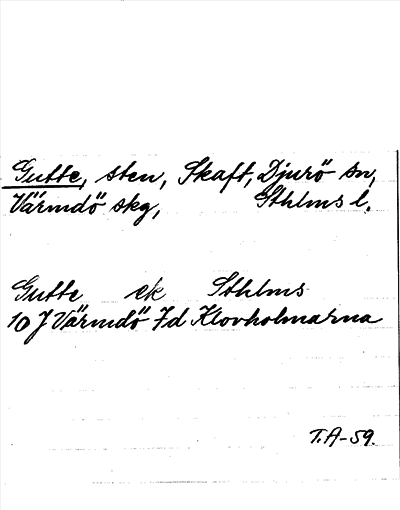 Gutte, sten, Skaft, Djurö sn,
Värmdö skg, Sthlms l.
Gutte ek Sthlms
10 J Värmdö 7d Klovholmarna
T.A-59.